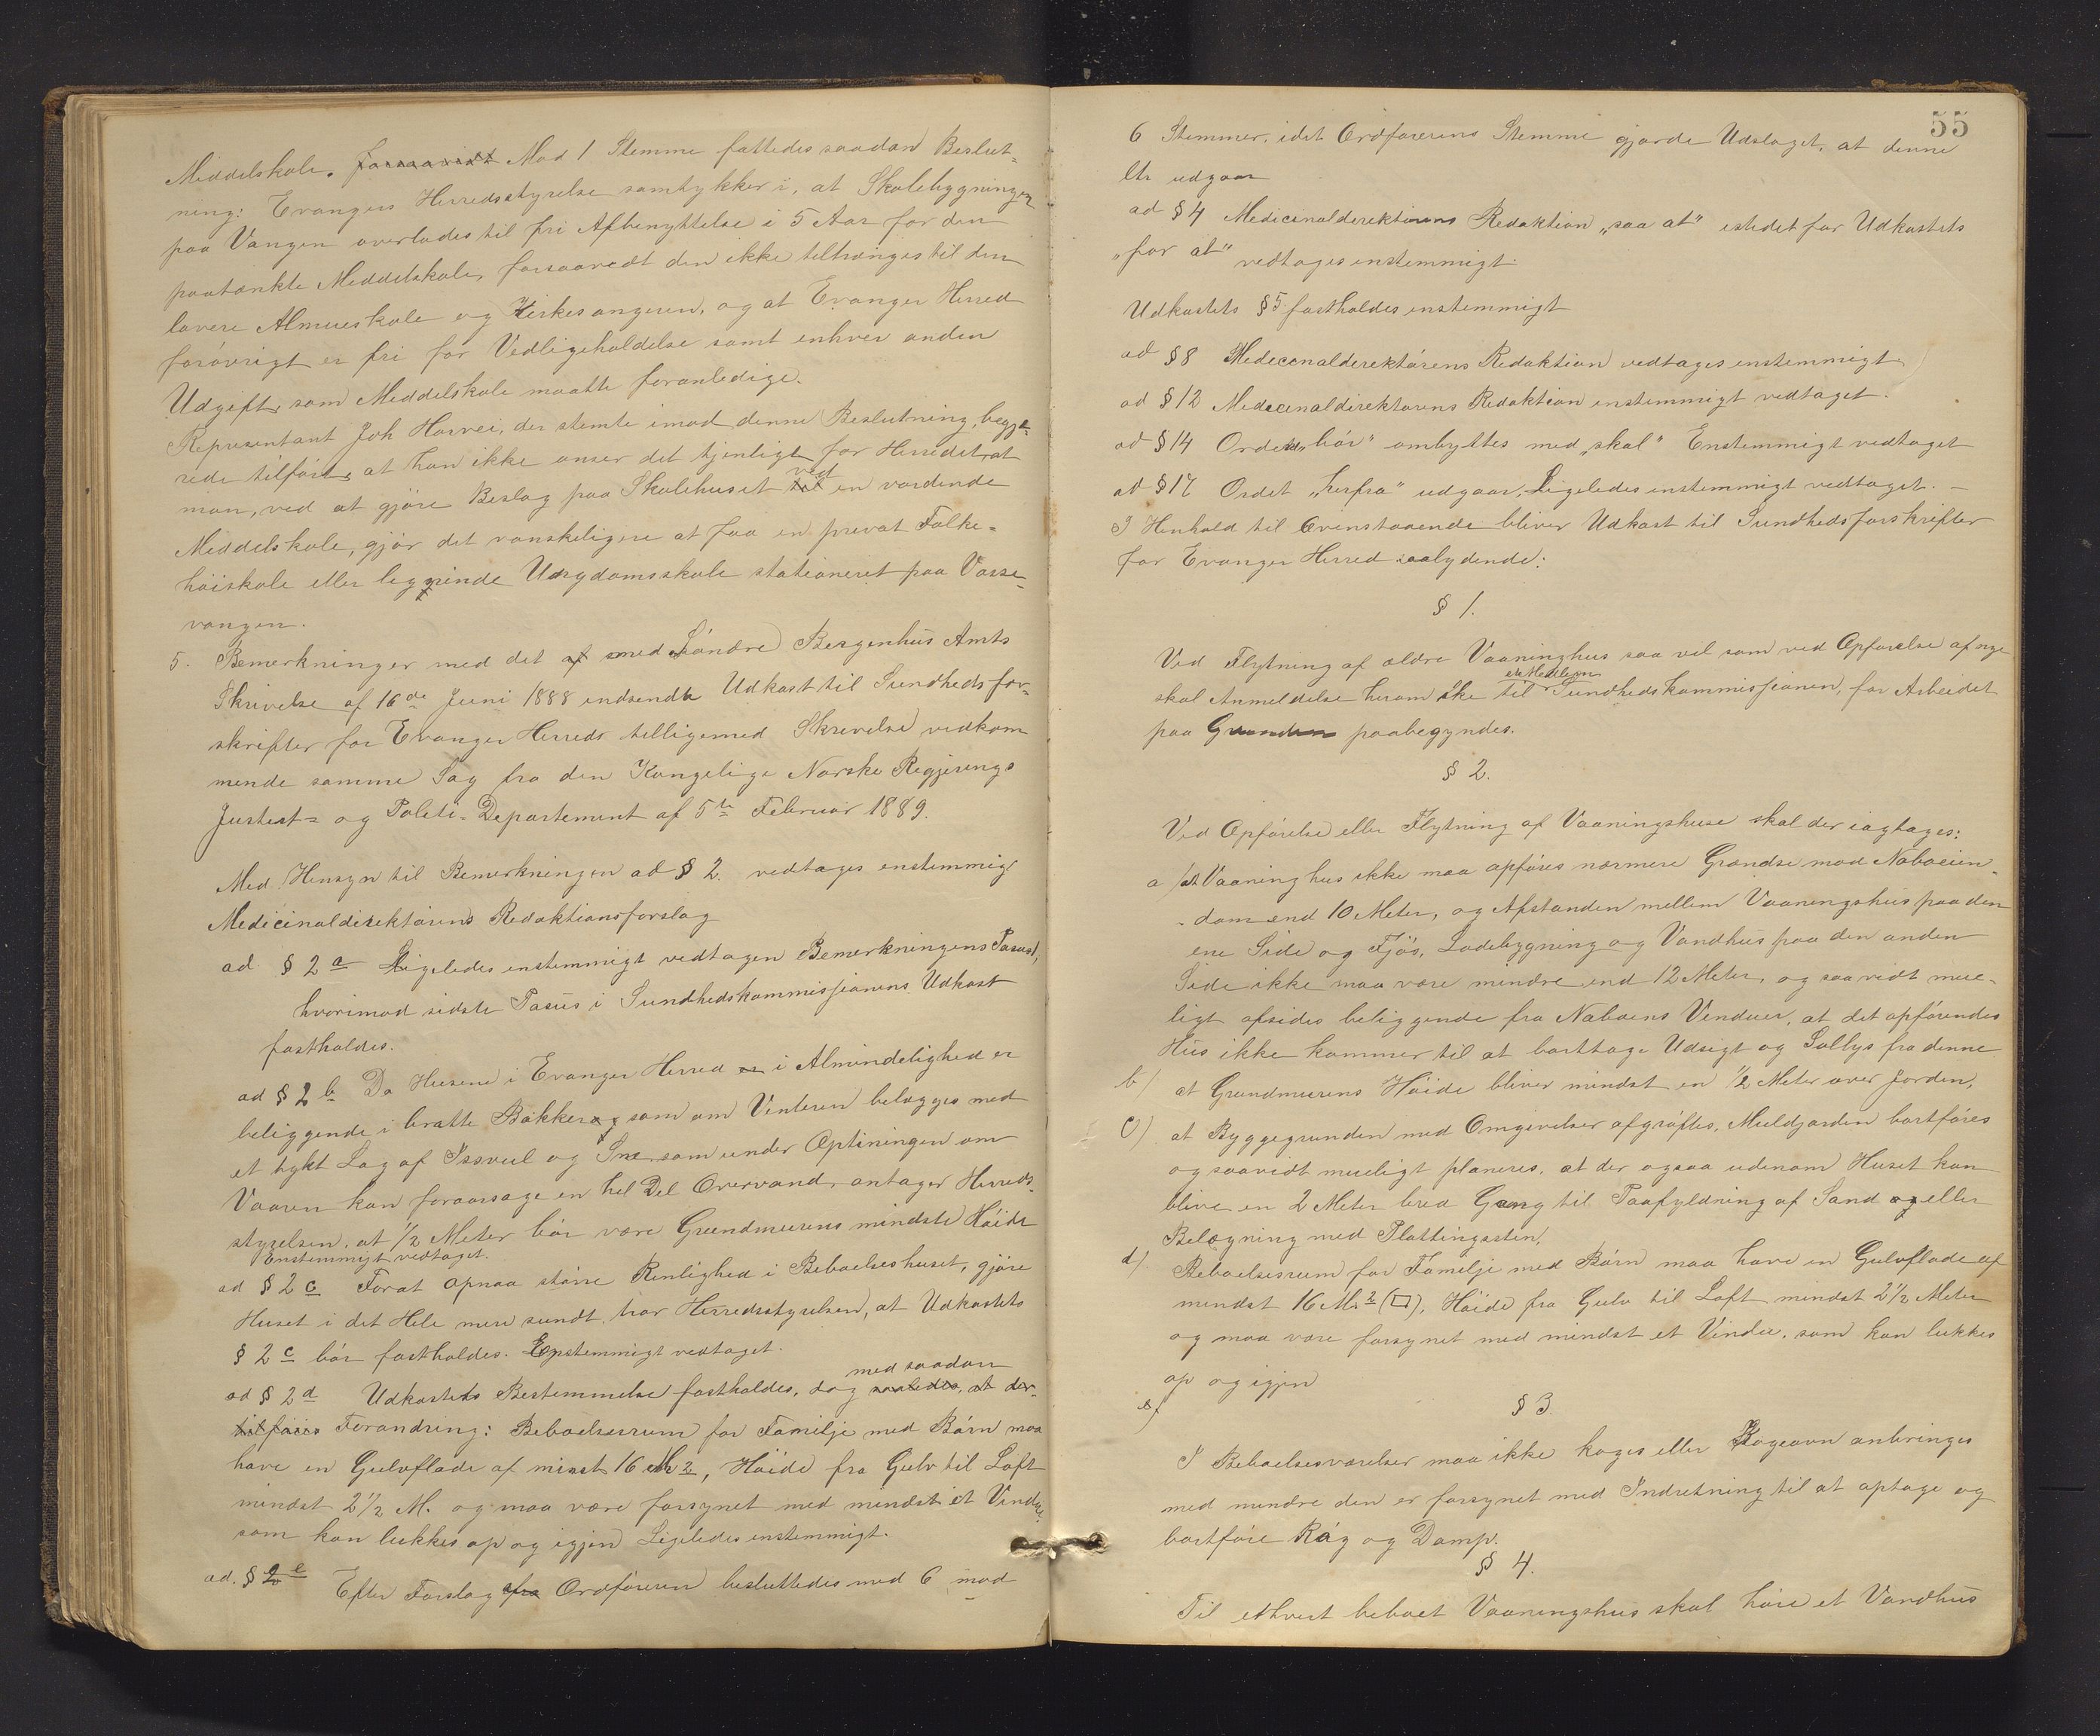 Middelskole. forsaavidt Mod 1 Stemme fattedes saadan Beslut-
ning: Evangers Herredsstyrelse samtykker i, at Skolebygningen
paa Vangen overlades til fri Afbenyttelse i 5 Aar for den
paatænkte Middelskole, forsaavidt den ikke tiltrænges til den
lavere Almueskole og Kirkesangeren, og at Evanger Herred
forøvrigt er fri for Vedligeholdelse samt enhver anden
Udgift, som Middelskole maatte foranledige.
Representant Joh Horvei, der stemte imod denne Beslutning, begjæ-
rede tilført, at han ikke anser det tjenligt for Herredet, at
man, ved at gjøre Beslag paa Skolehuset til ved en vordende
Middelskole, gjør det vanskeligere at faa en privat Folke-
høiskole eller lignende Ungdomsskole stationeret paa Vosse-
vangen.
5. Bemerkninger med det af med Søndre Bergenhus Amts
Skrivelse af 16de Juni 1888 indsendte Udkast til Sundhedsfor-
skrifter for Evanger Herreds tilligemed Skrivelse vedkom
mende samme Sag fra den Kongelige Norske Regjerings
Justits- og Politi-Departement af 5te Februar 1889.
Med Hensyn til Bemerkningen ad § 2. vedtages enstemmigt
Medicinaldirektørens Redaktionsforslag
ad § 2 a Ligeledes enstemmigt vedtagen Bemerkningens Pasus 1,
hvorimod sidste Pasus i Sundhedskommissionens Udkast
fastholdes.
ad § 2 b Da Husene i Evanger Herred er i Almindelighed er
beliggende i bratte Bakker og som om Vinteren belægges med
et tykt Lag af Issvul og Sne som under Optiningen om
Vaaren kan foraarsage en hel Del Overvand, antager Herreds-
styrelsen, at 1/2 Meter bør være Grundmurens mindste Høide
Enstemmigt vedtaget.
ad § 2 c For at opnaa større Renlighed i Beboelseshuset, gjøre
Huset i det Hele mere sundt, tror Herredsstyrelsen, at Udkastets
§ 2 c bør fastholdes. Enstemmigt vedtaget.
med saadan
ad § 2 d Udkastets Bestemmelse fastholdes, dog saaledes, at der-
tilføies Forandring: Beboelsesrum for Familje med Børn maa
have en Gulvflade af mindst 16 M 2, Høide fra Gulv til Loft
mindst 2 1/2 M. og maa være forsynet med mindst et Vindue
som kan lukkes op og igjen Ligeledes enstemmigt.
ad. § 2 e Efter Forslag fra Ordføreren besluttedes med 6 mod
55
6 Stemmer, idet Ordførerens Stemme gjorde Udslaget, at denne
Ltr udgaar
ad § 4 Medicinaldirektørens Redaktion "saa at" istedetfor Udkastets
"for at" vedtages enstemmigt.
Udkastets § 5 fastholdes enstemmigt
ad § 8 Medecinaldirektørens Redaktion vedtages enstemmigt
ad § 12 Medecinaldirektørens Redaktion enstemmigt vedtaget.
ad § 14 Ordet "bør" ombyttes med "skal" Enstemmigt vedtaget
ad § 17 Ordet "herfra" udgaar, Ligeledes enstemmigt vedtaget. –
I Henhold til Ovenstaaende bliver Udkast til Sundhedsforskrifter
for Evanger Herred saalydende:
§ 1.
Ved Flytning af ældre Vaaninghus saa vel som ved Opførelse af nye
et Medlem
skal Anmeldelse herom ske til Sundhedskommissionen, før Arbeidet
paa Grunden paabegyndes.
§ 2.
Ved Opførelse eller Flytning af Vaaningshuse skal der iagtages:
a/ at Vaaninghus ikke maa opføres nærmere Grændse mod Naboeien-
-dom end 10 Meter, og Afstanden mellem Vaaningshus paa den
ene Side og Fjøs, Ladebygning og Vandhus paa den anden
Side ikke maa være mindre end 12 Meter, og saavidt mue-
ligt afsides beliggende fra Naboens Vinduer, at det opførendes
Hus ikke kommer til at borttage Udsigt og Sollys fra denne
b/ at Grundmurens Høide bliver mindst en 1/2 Meter over Jorden,
c) at Byggegrunden med Omgivelser afgrøftes, Muldjorden bortføres
og saavidt mueligt planeres, at der ogsaa udenom Huset kan
blive en 2 Meter bred Gang til Paafyldning af Sand og eller
Belægning med Plattingssten,
d) Beboelsesrum for Familje med Børn maa have en Gulvflade af
mindst 16 M. 2 (□), Høide fra Gulv til Loft mindst 2 1/2 Meter
og maa være forsynet med mindst et Vindue, som kan lukkes
op og igjen
e/
§ 3.
I Beboelsesværelser maa ikke koges eller Kogeovn anbringes
med mindre den er forsynet med Indretning til at optage og
bortføre Røg og Damp.
§ 4.
Til ethvert beboet Vaaningshus skal høre et Vandhus